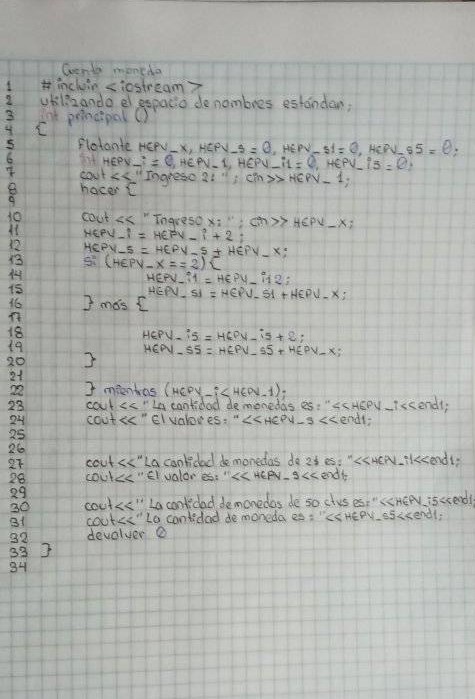 Cuenta moneda
1 # incluir <iostream>
2 utilizando el espacio de nombres estándar;
3 int principal ()
4 {
5 Flotante HEPV_X, HEPV_S = 0, HEPV_S1 = 0, HEPV_S5 = 0;
6 int HEPV_i = 0, HEPV_1, HEPV_i1 = 0, HEPV_i5 = 0;
7 cout << "Ingreso 21 "; cin >> HEPV_1;
8 hacer {
9
10 cout << "Ingreso x: "; cin >> HEPV_X;
11 HEPV_i = HEPV_i + 2;
12 HEPV_S = HEPV_S + HEPV_X;
13 si (HEPV_X == 2) {
14 HEPV_i1 = HEPV_i12;
15 HEPV_S1 = HEPV_S1 + HEPV_X;
16 } más {
17
18 HEPV_i5 = HEPV_i5 + 2;
19 HEPV_S5 = HEPV_S5 + HEPV_X;
20 }
21
22 } mientras (HEPV_i < HEPV_1);
23 cout << "La cantidad de monedas es: " << HEPV_i << endl;
24 cout << "El valor es: " << HEPV_S << endl;
25
26
27 cout << "La cantidad de monedas de 2$ es: " << HEPV_i1 << endl;
28 cout << "El valor es: " << HEPV_S << endl;
29
30 cout << "La cantidad de monedas de 50 ctvs es: " << HEPV_i5 << endl;
31 cout << "La cantidad de moneda es: " << HEPV_S5 << endl;
32 devolver 0
33 }
34